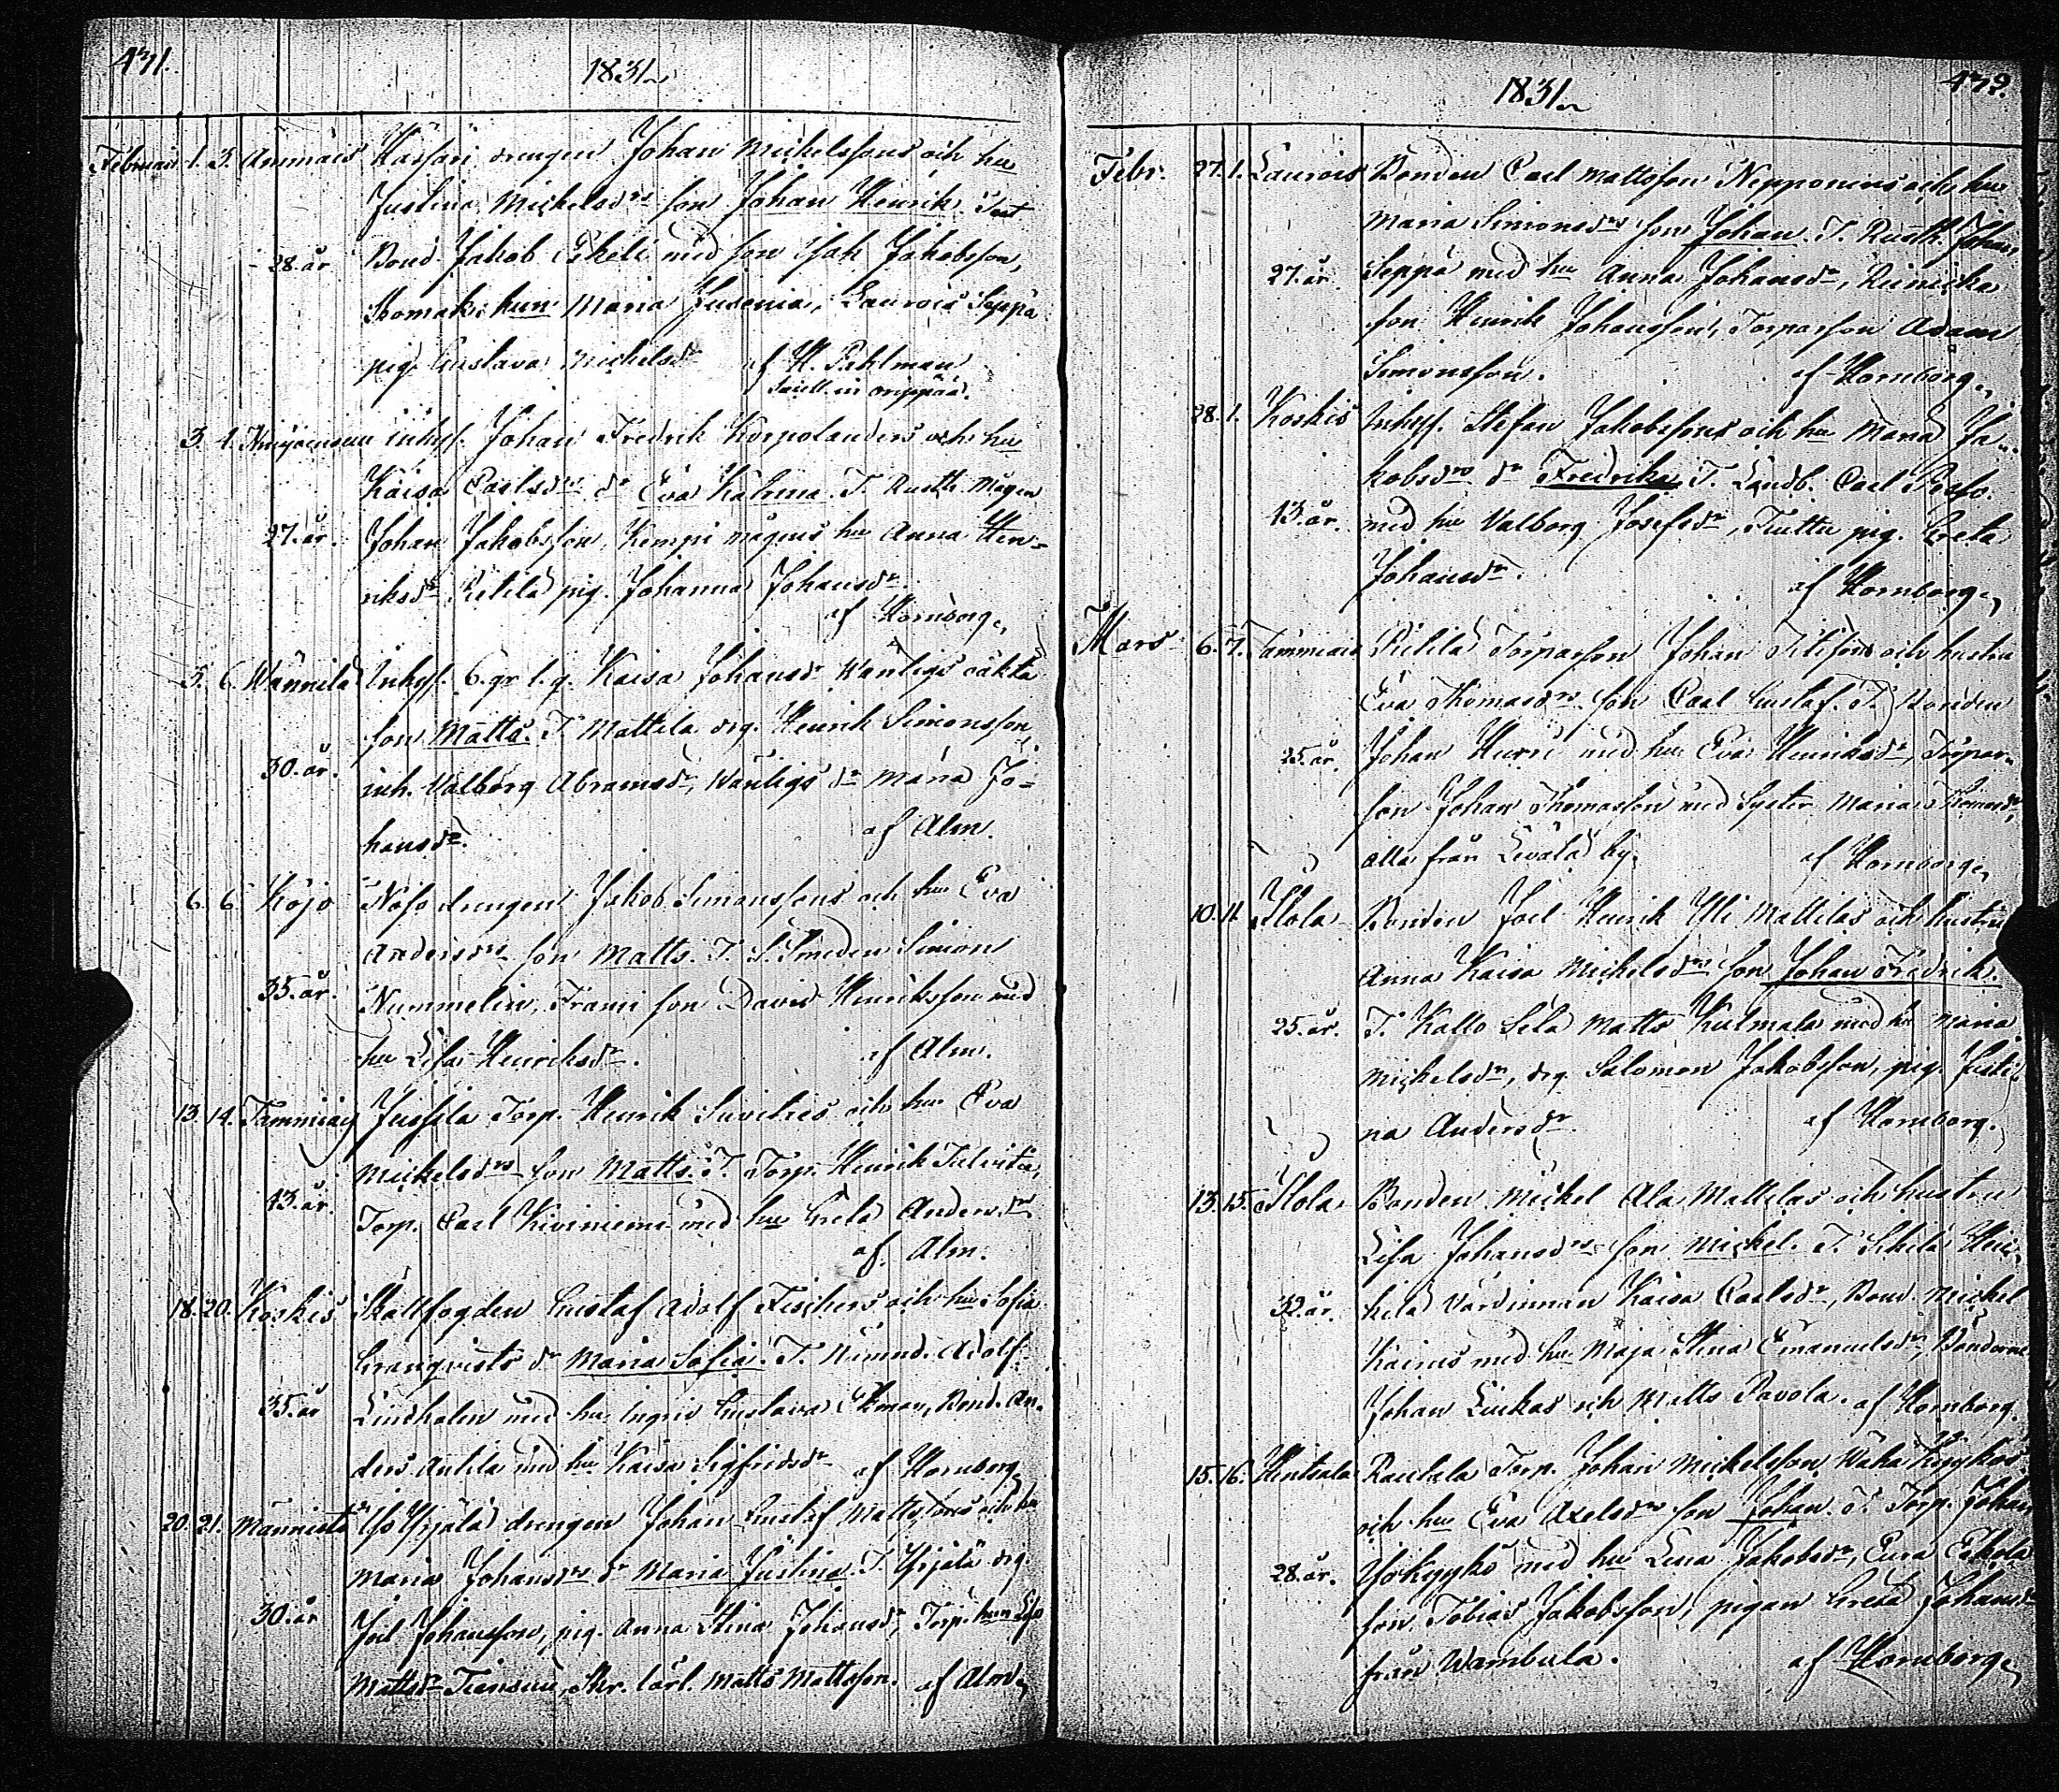 431.
1831
Februari 1. 3. Ammais drengen Johan Mickelssons och hu
Justina Mickelsdrs son Johan Henrik. Test
28. år Bond. Jakob Eskeli med son Isak Jakobsson,
Skomak: hun Maria Jusenia, Laurois Seppä
pig. Gustava Mickelsdr af H. Pahlman
Sacell. in Oripää.
3. 4. inhys. Johan Fredrik Korpolanders och hu
Kaisa Carlsdrs dr Eva T. Rusth. Mågen
27. år. Johan Jakobsson, Kempi mågens hu Anna Hen-
riksdr pig. Johanna Johansdr.
af Hornborg.
5. 6. Wännilä Inhys. 6. gr l. q. Kaisa Johansdr Wänligs oäkta
son Matts. T. Mattila drg. Henrik Simonsson,
30. år. inh. Valborg Abramsdr, Wänligs dr Maria Jo-
hansdr. af Alm.
6. 6. Köjo drengen Jakob Simonssons och hu Eva
Andersdrs son Matts. T. S. Smeden Simon
35. år. Nummelin, Frami son David Henriksson med
hu Lisa Henriksdr. af Alm.
13. 14. Tammiais Jussila Torp. Henrik och hu Eva
Mickelsdrs son Matts. T. Torp. Henrik
43. år. Torp. Carl Kiviniemi med hu Greta Andersdr
af Alm.
18. 20. Koskis Skallfogden Gustaf Adolf Fischers och hu Sofia
Granqvists dr Maria Sofia. T. Nämnd. Adolf
35. år Lindholm med hu Ingrid Gustava Ekman, Bond. An-
ders Anttila med hu Kaisa Sigfridsdr af Hornborg
20. 21. Männistö Yrjälä drengen Johan Gustaf Mattssons och hu
Maria Johansdrs dr Maria Justina. T. Yrjälä drg
30. år Joel Johansson, pig. Anna Stina Johansdr, Torp. hun Lisa
Mattsdr Skr. lärl. Matts Mattsson. af Alm
439.
1831
Febr. 27. 1. Laurois Bonden Carl Mattsson Nepponens och hu
Maria Simonsdrs son Johan. T. Rusth. Johan
27. år. Seppä med hu Anna Johansdr,
son Henrik Johansson, Torparson Adam
Simonsson. af Hornborg.
28. 1. Koskis Inhys. Stefan Jakobssons och hu Maria Ja-
kobsdrs dr Fredrika. T. Landb. Carl
43. år. med hu Valborg Josefsdr, pig. Greta
Johansdr. af Hornborg.
Mars 6. 7. Tammiais Torparson Johan och hustru
Eva Thomasdrs son Carl Gustaf. T. Bonden
25. år. Johan Hurri med hu Eva Henriksdr, Torpar-
son Johan Thomasson med Syster Maria Thomasdr,
alla från Levälä by. af Hornborg.
10. 11. Ilola Bonden Joel Henrik Yli Mattilas och hustru
Anna Kaisa Mickelsdrs son Johan Fredrik.
25. år. T. Kallo Sela Matts Kulmala med hu Maria
Mickelsdr, drg Salomon Jakobsson, pig. Justi-
na Andersdr. af Hornborg.
13. 15. Ilola Bonden Mickel Ala Mattilas och hustru
Lisa Johansdrs son Mickel. T.
32. år. Värdinnan Kaisa Carlsdr, Bond. Mickel
med hu Maja Stina Emanuelsdr, Bönderne
Johan och Matts Pavola. af Hornborg.
15. 16. Rautala Torp. Johan Mickelsson Wähä Kyykäs
och hu Eva Axelsdrs son Johan. T. Torp. Johan
28. år. med hu Lena Jakobsdr, Eura Eskola
son Tobias Jakobsson, pigan Greta Johansdr
från Wambula. af Hornborg